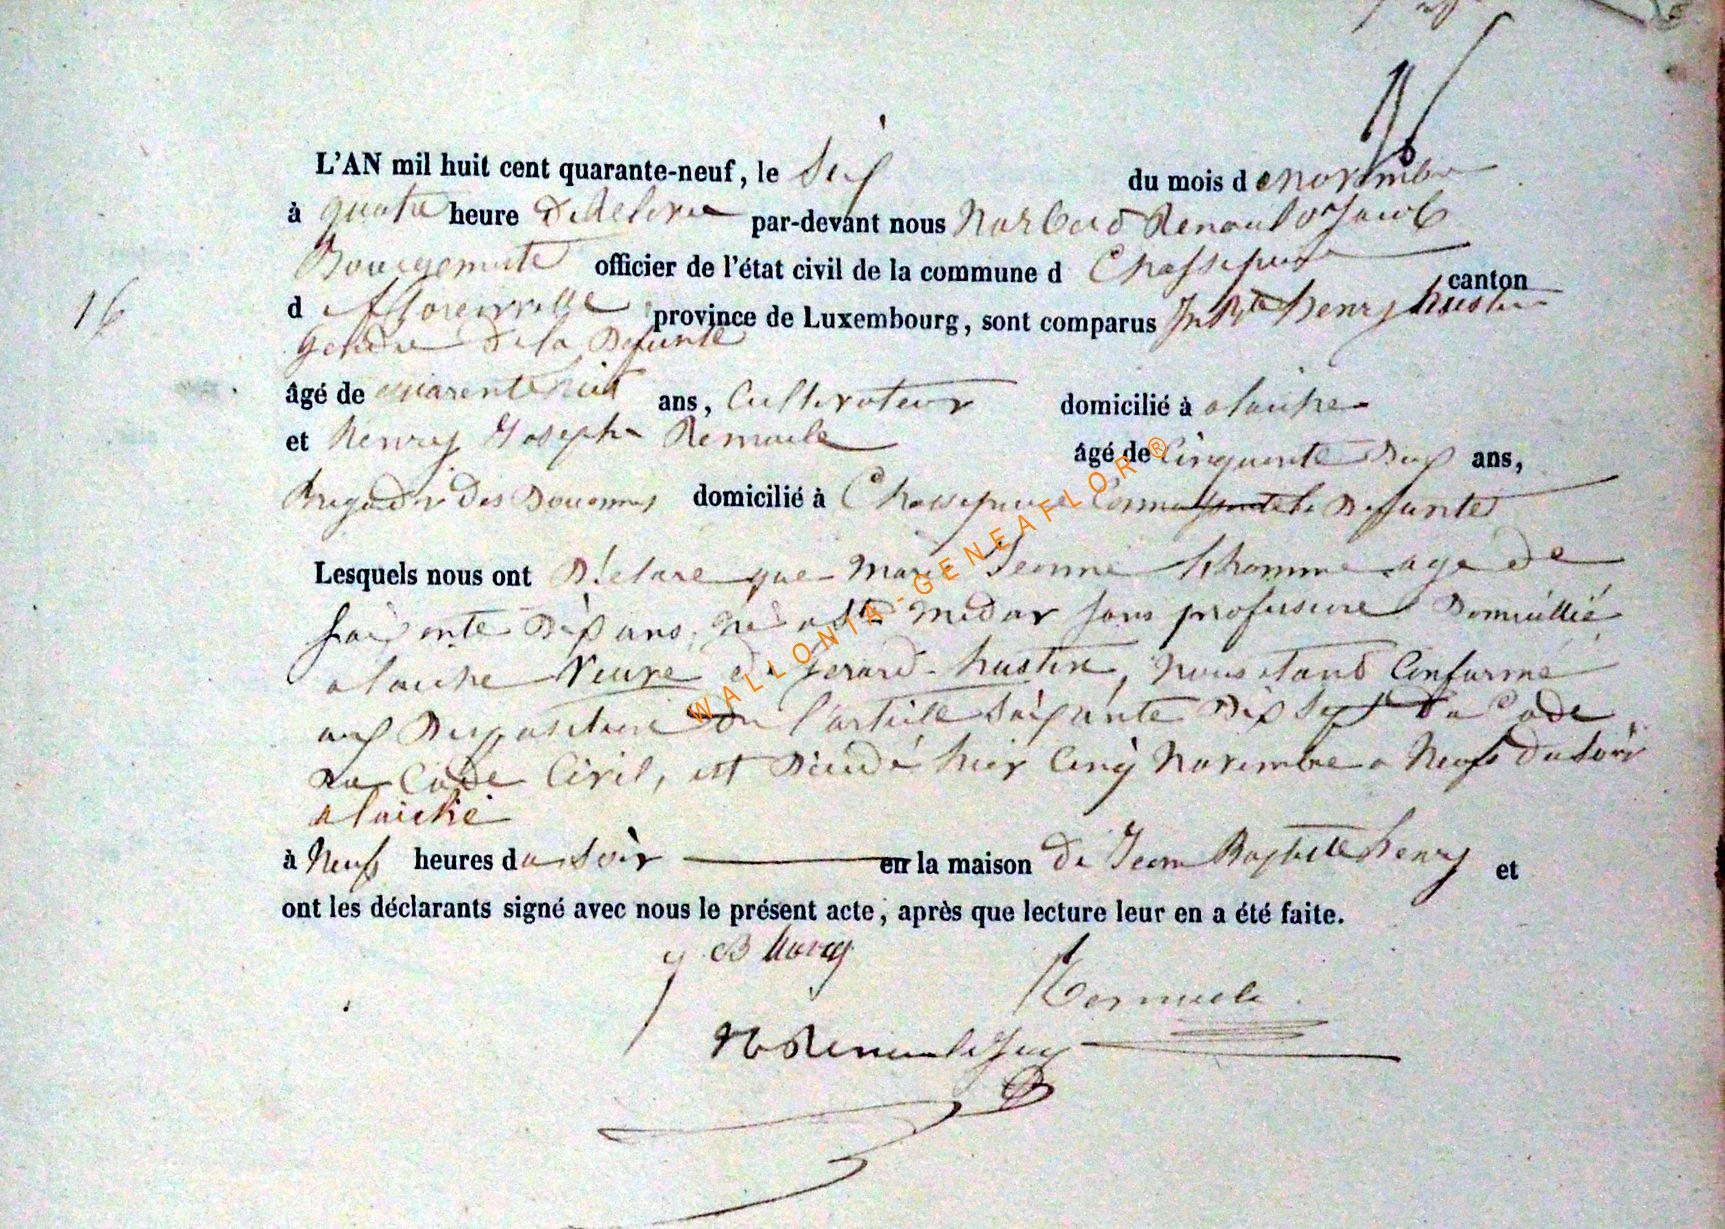 16
L'AN mil huit cent quarante-neuf, le Six du mois de novembre
à quatre heure De Relevée par-devant nous Norberd Renauld Jacob
Bourgemestre officier de l'état civil de la commune d Chassepierre canton
d fflorenville province de Luxembourg, sont comparus Jn Bte henry hustin
gendre de la Defunte
âgé de quarente huit ans, Cultivateur domicilié à alaiche
et henry Joseph Remacle âgé de Cinquente Deux ans,
Brigadir des Douannes domicilié à Chassepierre Connaissante la Defunte
Lesquels nous ont Déclare que Marie Jeanne thomme age de
soixente Dix ans, né a St Medar sans professione Domicillié
alaiche Veuve de Gerard hustin, nous étand Conformé
aux Dispositions de l'article soixante Dix Sept Du Code
Du Code Civil, est Décidé hier Cinq Novembre a Neufs du Soir
a laiche
à Neufs heures du Soir en la maison De Jean Baptiste henry et
ont les déclarants signé avec nous le présent acte, après que lecture leur en a été faite.
J B henry
Remacle
N Renauld Jacob
WALLONIA-GENEAFLOR®